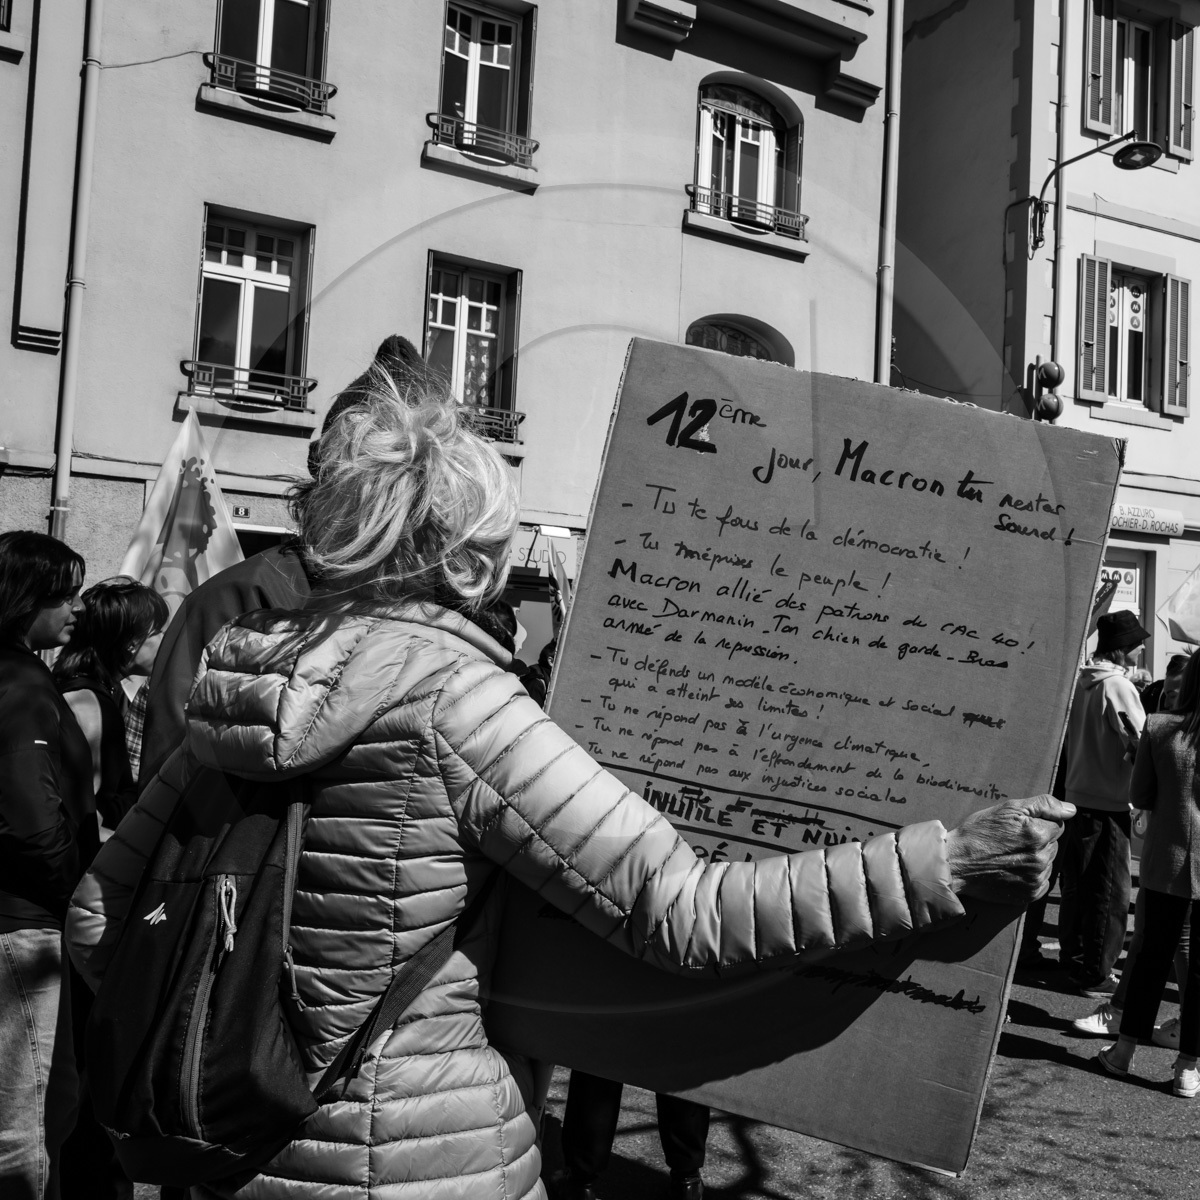 12ème
jour, Macron tu restes
Sourd !
- Tu te fous de la démocratie !
- Tu méprises le peuple !
Macron allié des patrons du CAC 40 !
avec Darmanin - Ton chien de garde - Bras
armé de la repression.
- Tu défends un modèle économique et social
qui a atteint ses limites !
- Tu ne répond pas à l'urgence climatique,
- Tu ne répond pas à l'effondement de la biodiversité
Tu ne répond pas aux injustices sociales
INUTILE ET
8
STUDIO
B. AZZURO
OCHIER-D. ROCHAS